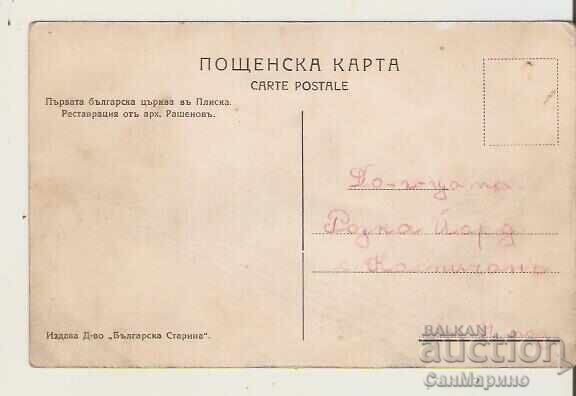 ПОЩЕНСКА КАРТА
CARTE POSTALE
Първата българска църква въ Плиска.
Реставрация отъ арх. Рашеновъ.
Розка Йорд
Издава Д-во „Българска Старина".
BALKAN
auction
СанМарино